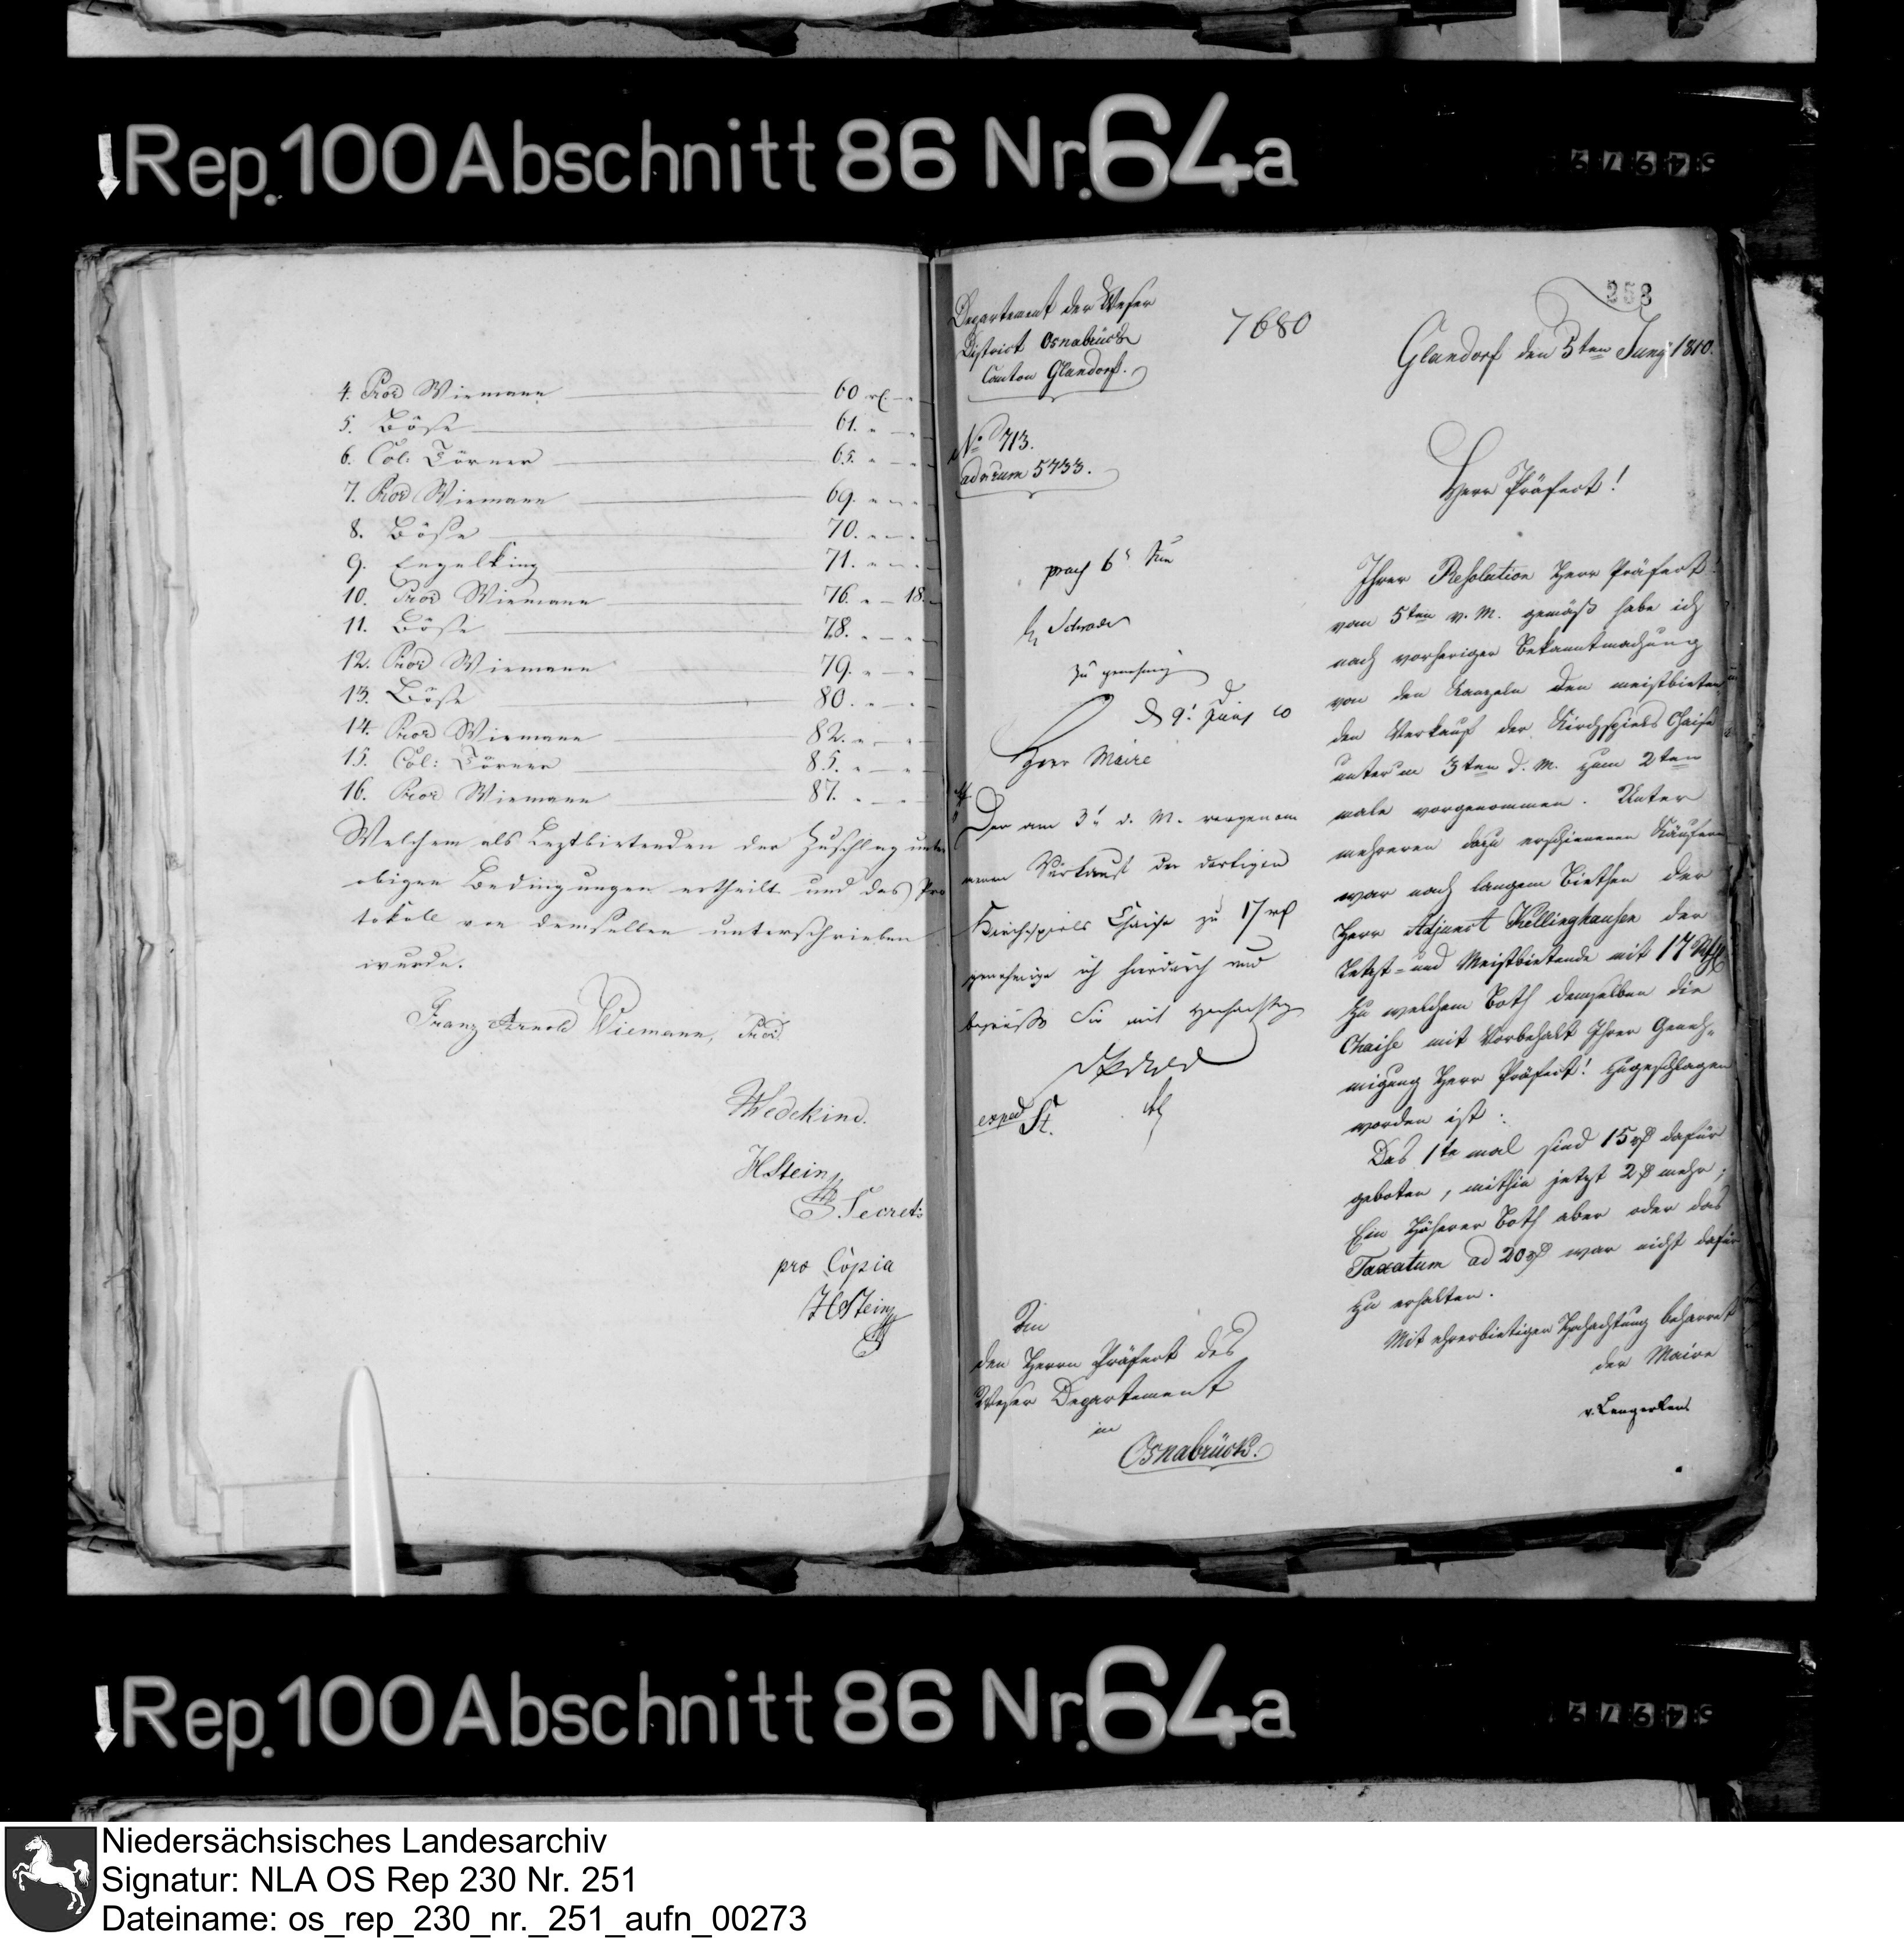 Rep. 100 Abschnitt 86 Nr. 64a
4. Proc Wiemann 60 rl. - "
5. Böse 61. " - "
6. Col: Törner 65. " - "
7. Proc Wiemann 69. " - "
8. Böse 70. " - "
9. Engelking 71. " - "
10. Proc Wiemann 76. " - 18.
11. Böse 78. " - "
12. Proc Wiemann 79. " - "
13. Böse 80. " - "
14. Proc Wiemann 82. " - "
15. Col: Törner 85. " - "
16. Proc Wiemann 87. " - "
Welchem als Leztbietenden der Zuschlag unter
obigen Bedingungen ertheilt und das Pro
tokoll von demselben unterschrieben
wurde.
Franz Arnold Wiemann,
Wedekind.
HStein
Secret:
pro Copia
HStein
258
Departement der Weser
District Osnabrück
Canton Glandorf.
7680
Glandorf den 5ten Juny 1810.
No 713.
ad num 5733.
Herr Präfect!
Ihrer Resolution Herr Präfect!
vom 5ten v. M. gemäß habe ich
nach vorheriger Bekanntmachung
von den Kanzeln den meistbieten
den Verkauf der Kirchspiels Chaise
unter'm 3ten d. M. zum 2ten
male vorgenommen. Unter
mehreren dazu erschienenen Käufern
war nach langem Biethen der
Herr Adjunct Kellinghausen der
Letzt- und Meistbietende mit 17 Rthl
zu welchem Both demselben die
Chaise mit Vorbehalt Ihrer Geneh-
migung Herr Präfect! zugeschlagen
worden ist:
Das 1te mal sind 15 rp dafür
geboten, mithin jetzt 2 rp mehr;
Ein höherer Both aber oder das
Taxatum ad 20 rp war nicht dafür
zu erhalten.
Mit ehrerbietiger Hochachtung beharret
der Maire
v. Lengerken
6t Jun
Schrader
zu genehmig
d 9t Juny 10
Herr Maire
Der am 3t d. M. vorgenom
menen Verkauf der dortigen
Kirchspiels Chaise zu 17 rl
genehmige ich hierdurch und
begrüße Sie mit Hochachtg
exped St.
An
den Herrn Präfect des
Weser Departement
in
Osnabrück.
Rep. 100 Abschnitt 86 Nr. 64a
Niedersächsisches Landesarchiv
Signatur: NLA OS Rep 230 Nr. 251
Dateiname: os_rep_230_nr._251_aufn_00273